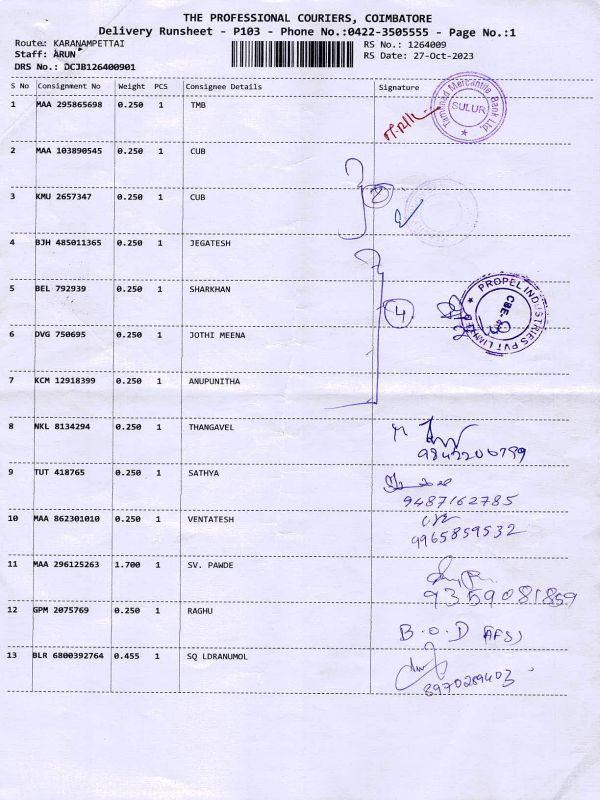 THE PROFESSIONAL COURIERS, COIMBATORE
Delivery Runsheet - P103 - Phone No.:0422-3505555 - Page No.:1
Route: KARANAMPETTAI RS No.: 1264009
Staff: ARUN RS Date: 27-Oct-2023
DRS No.: DCJB126400901
S No Consignment No Weight PCS Consignee Details Signature
1 MAA 295865698 0.250 1 TMB
Tamilnad Mercantile Bank Ltd.
SULUR
2 MAA 103890545 0.250 1 CUB
2
3 KMU 2657347 0.250 1 CUB
4 BJH 485011365 0.250 1 JEGATESH
5 BEL 792939 0.250 1 SHARKHAN
PROPEL INDUSTRIES PVT LIMITED
CBE.
4
6 DVG 750695 0.250 1 JOTHI MEENA
7 KCM 12918399 0.250 1 ANUPUNITHA
8 NKL 8134294 0.250 1 THANGAVEL
9842206799
9 TUT 418765 0.250 1 SATHYA
9487162785
10 MAA 862301010 0.250 1 VENTATESH
9965859532
11 MAA 296125263 1.700 1 SV. PAWDE
9359081859
12 GPM 2075769 0.250 1 RAGHU
B.O.D
13 BLR 6800392764 0.455 1 SQ LDRANUMOL
8970289403